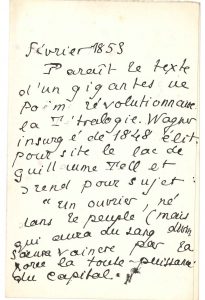 Février 1853
Paraît le texte
d'un gigantesque
Poèm révolutionnaire
la Tétralogie. Wagner
insurgé de 1848 élit
pour site le lac de
Guillaume Tell et
prend pour sujet :
"un ouvrier, né
dans le peuple (mais
qui aura du sang divin
saura vaincre par la
force la toute-puissance
du capital."